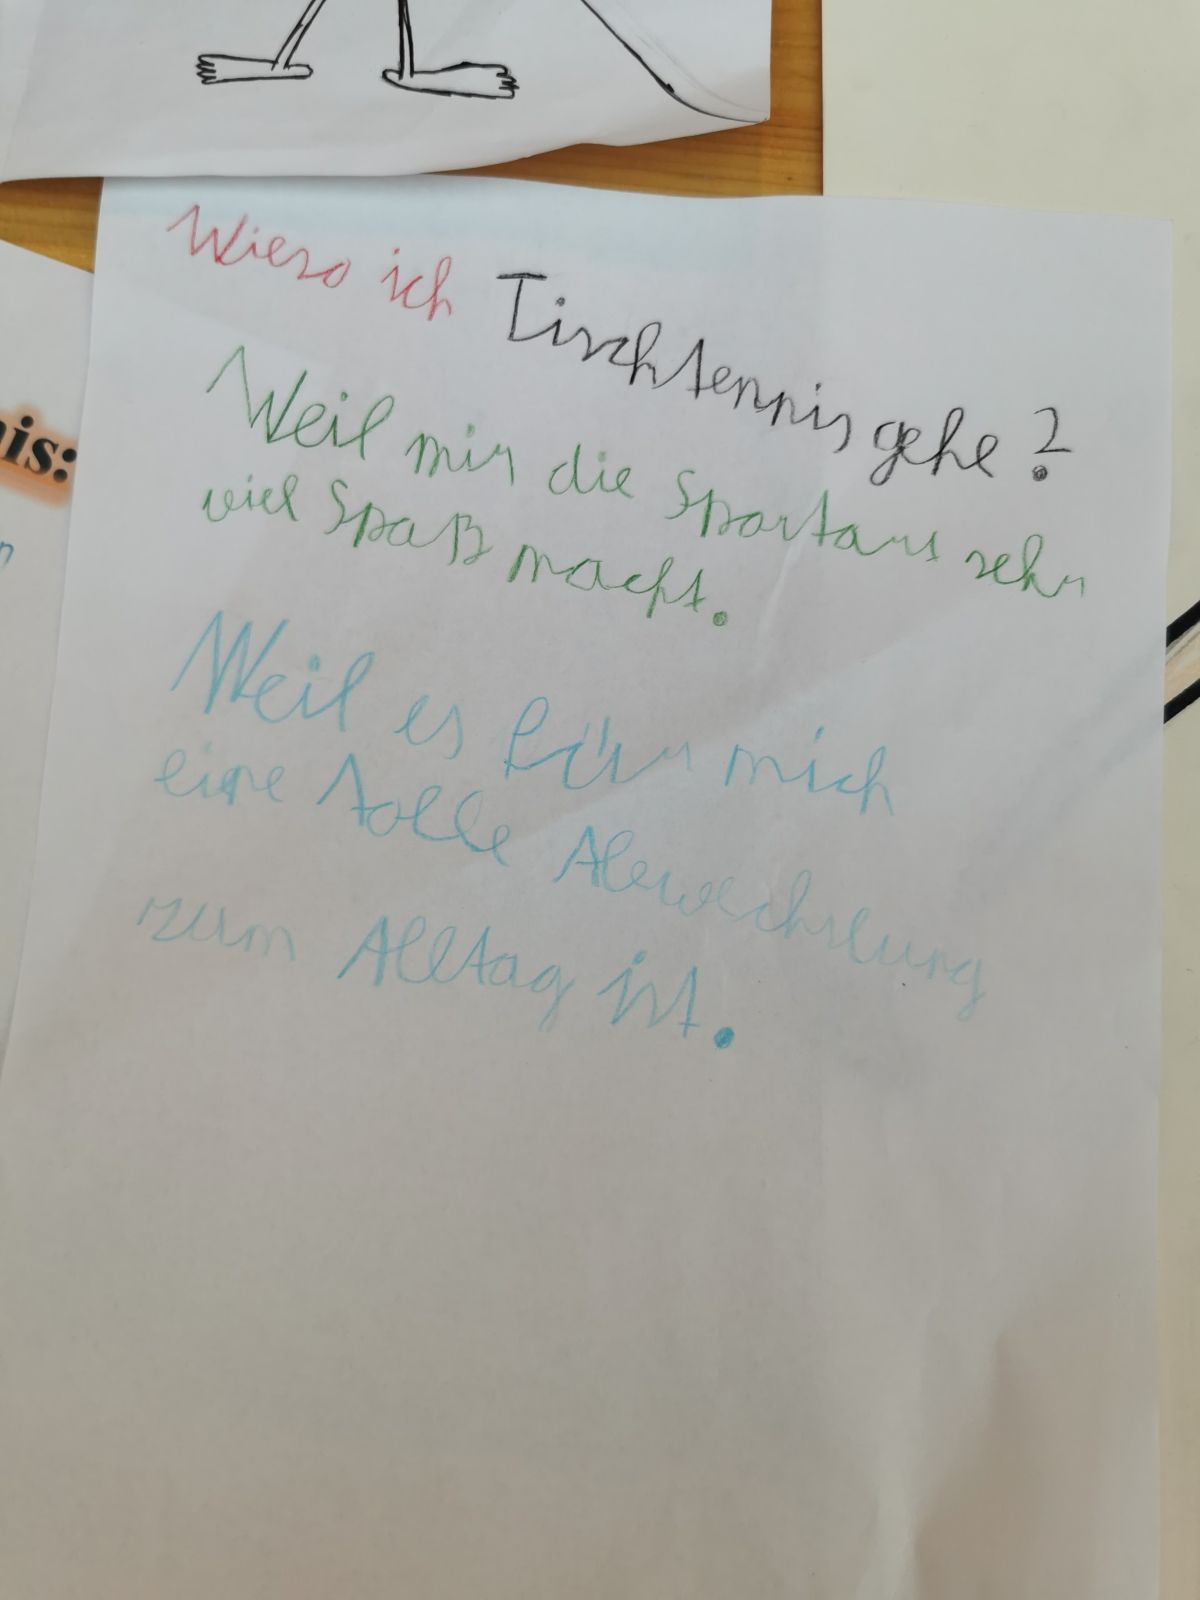 Wieso ich Tischtennis gehe?
Weil mir die Sportart sehr
viel Spaß macht.
Weil es für mich
eine tolle Abwechslung
zum Alltag ist.
nis:
n